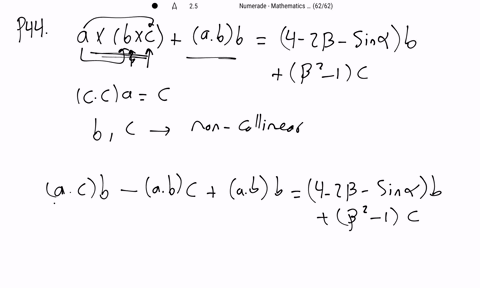 2.5 Numerade - Mathematics ... (62/62)
P44. a x (b x c) + (a.b) b = (4-2β - Sinα) b
+ (β² -1) c
(c.c) a = c
b, c → non-collinear
(a.c) b - (a.b) c + (a.b) b = (4-2β - Sinα) b
+ (β² -1) c